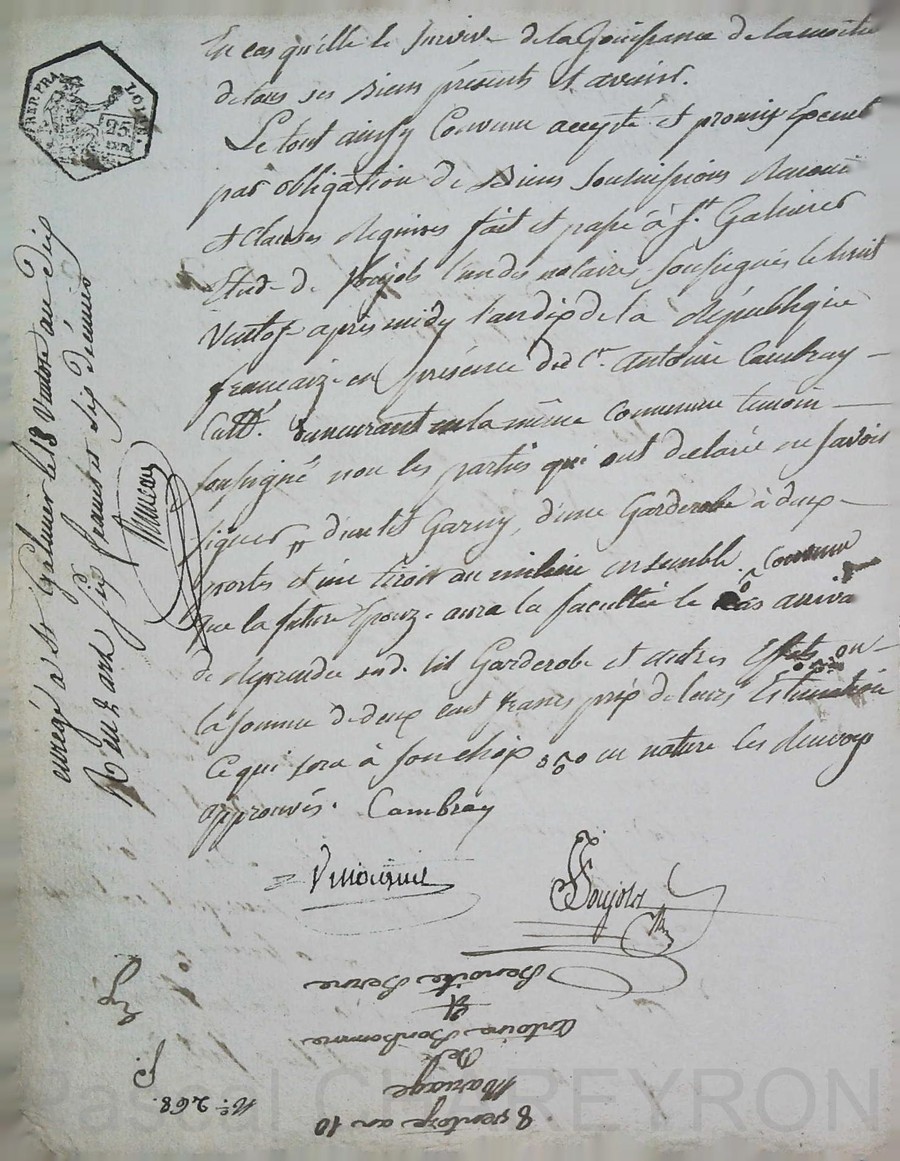 En cas qu'ille le survive de la Jouissance de la moitié
de tous ses Biens présents et avenir.
Le tout ainsy Convenu accepté et promis
par obligation de Biens soumissions
et Clauses Requises fait et passé à St. Galmier
Etude de Soujols l'un des notaires soussignés le huit
Ventose après midy l'an dix de la République
francaize en présence du Cn. Antoine Cambray
demeurant en la même Commune temoin
soussigné non les parties qui ont déclaré ne savoir
signer d'un lit Garny, d'une Garderobe à deux
portes et un tiroir au milieu ensemble. Convenu
que la future Epouze aura la facultée le Cas arrivé
de Reprendre sesd. lit Garderobe et autres Effets ou
la somme de deux cent francs prix de leurs Estimation
Ce qui sera à son choix en nature les Renvoys
approuvés. Cambray
Soujols
enregé à St Galmier le 18 Ventose an Dix
R. un franc et dix Decimes
REP. FRA.
LOIRE.
25
8 ventoze an 10
Mariage
de
Antoine Bonhomme
et
Benoite Berne
No. 268.
Pascal CHOREYRON